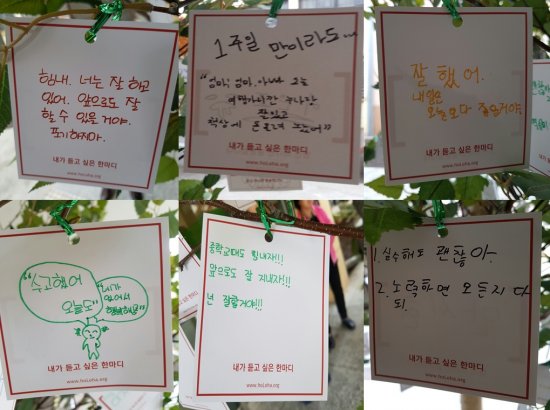 힘내. 너는 잘 하고
있어. 앞으로도 잘
할 수 있을 거야.
포기하지마.
내가 듣고 싶은 한마디
www.holoha.org
1주일 만이라도...
"엄마, 아빠 오늘
여행가니깐 누나랑
잘있고
책상에 돈 올려 뒀어"
내가 듣고 싶은 한마디
www.holoha.org
잘 했어.
내일은
오늘보다 좋을거야
내가 듣고 싶은 한마디
www.holoha.org
"수고했어
오늘도"
"너가
있어서
행복해"
내가 듣고 싶은 한마디
www.holoha.org
중학교때도 힘내자!!!
앞으로도 잘 지내자!!!
넌 잘할거야!!!
내가 듣고 싶은 한마디
www.holoha.org
1. 실수해도 괜찮아.
2. 노력하면 모든지 다
되.
내가 듣고 싶은 한마디
www.holoha.org